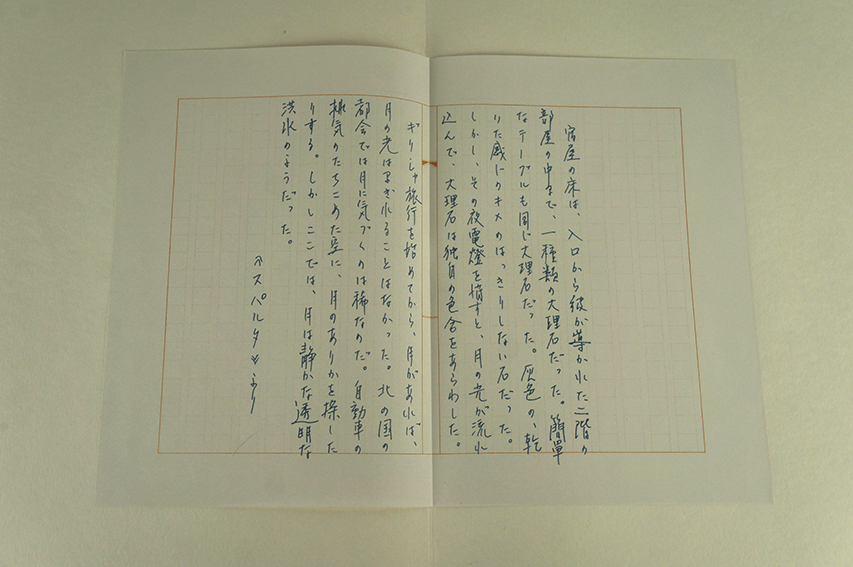 宿屋の床は、入口から彼が導かれた二階の
部屋の中まで、一種類の大理石だった。簡単
なテーブルも同じ大理石だった。灰色の、乾
いた感じのキメのはっきりしない石だった。
しかし、その夜電燈を消すと、月の光が流れ
込んで、大理石は独自の色合をあらわした。
ギリシャ旅行を始めてから、月があれば、
月の光はまぎれることはなかった。北の国の
都会では月に気づくのは稀なのだ。自動車の
排気のたちこめた空に、月のありかを探した
りする。しかしここでは、月は静かな透明な
洪水のようだった。
〈スパルタ〉より